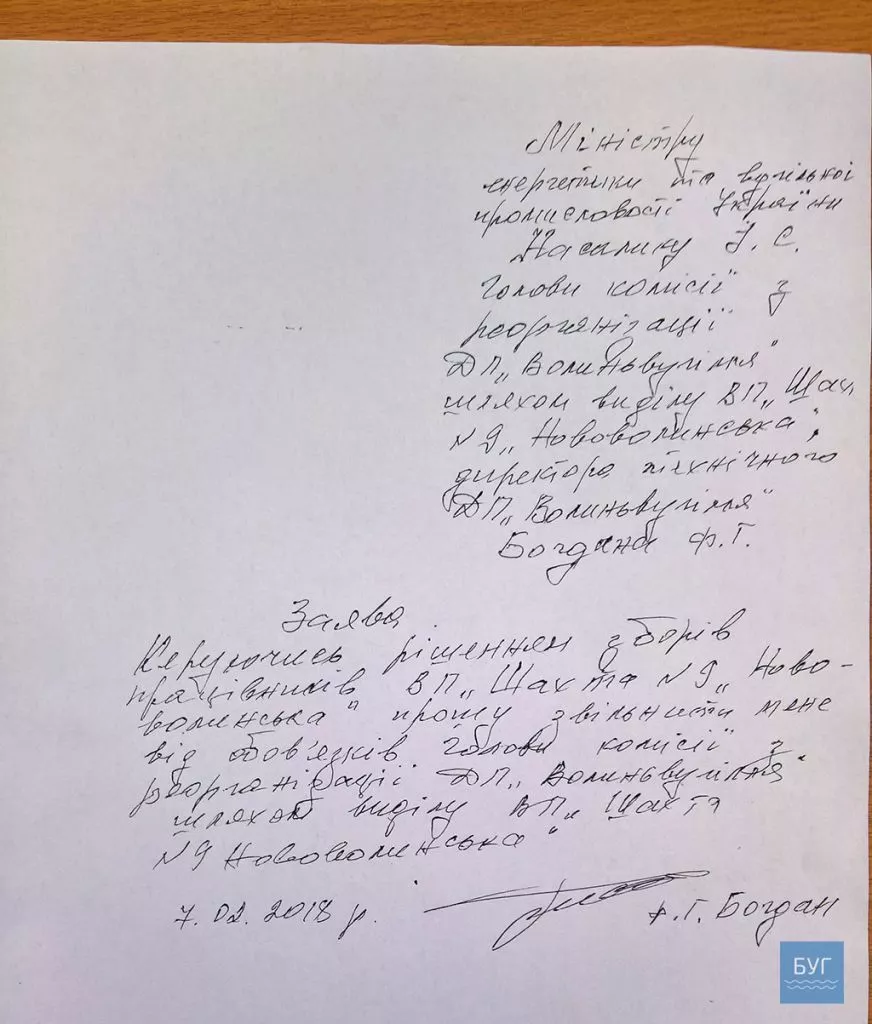 Міністру
енергетики та вугільної
промисловості України
Насалику І. С.
Голови комісії з
реорганізації
ДП „Волиньвугілля"
шляхом виділу ВП „Шах
№9 „Нововолинська",
директора технічного
ДП „Волиньвугілля"
Богдана Ф.Г.
Заява
Керуючись рішенням зборів
працівників ВП „Шахта №9 „Ново-
волинська" прошу звільнити мене
від обов'язків голови комісії з
реорганізації ДП „Волиньвугілля"
шляхом виділу ВП „Шахта
№9 Нововолинська"
7.02.2018 р. Ф.Г. Богдан
БУГ